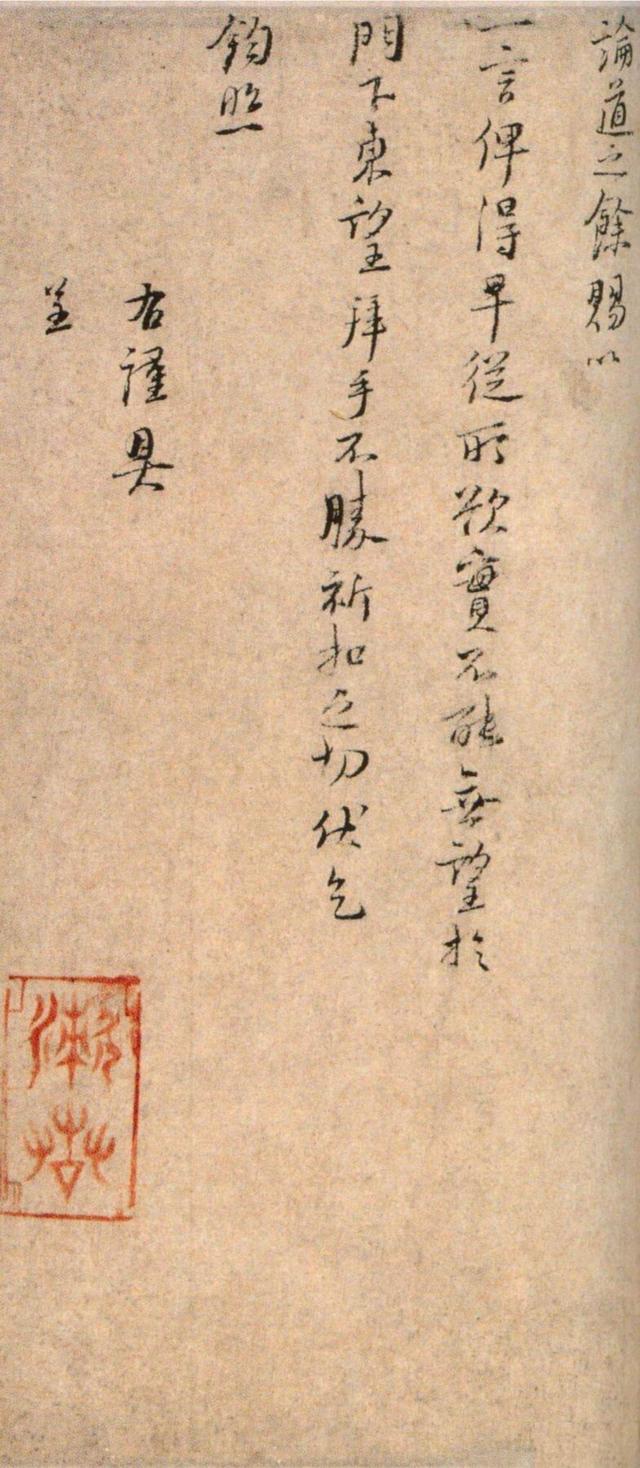 論道之餘賜以
一言俾得早從所欲實不能無望於
門下東望拜手不勝祈扣之切伏乞
鈞照
右謹具
呈